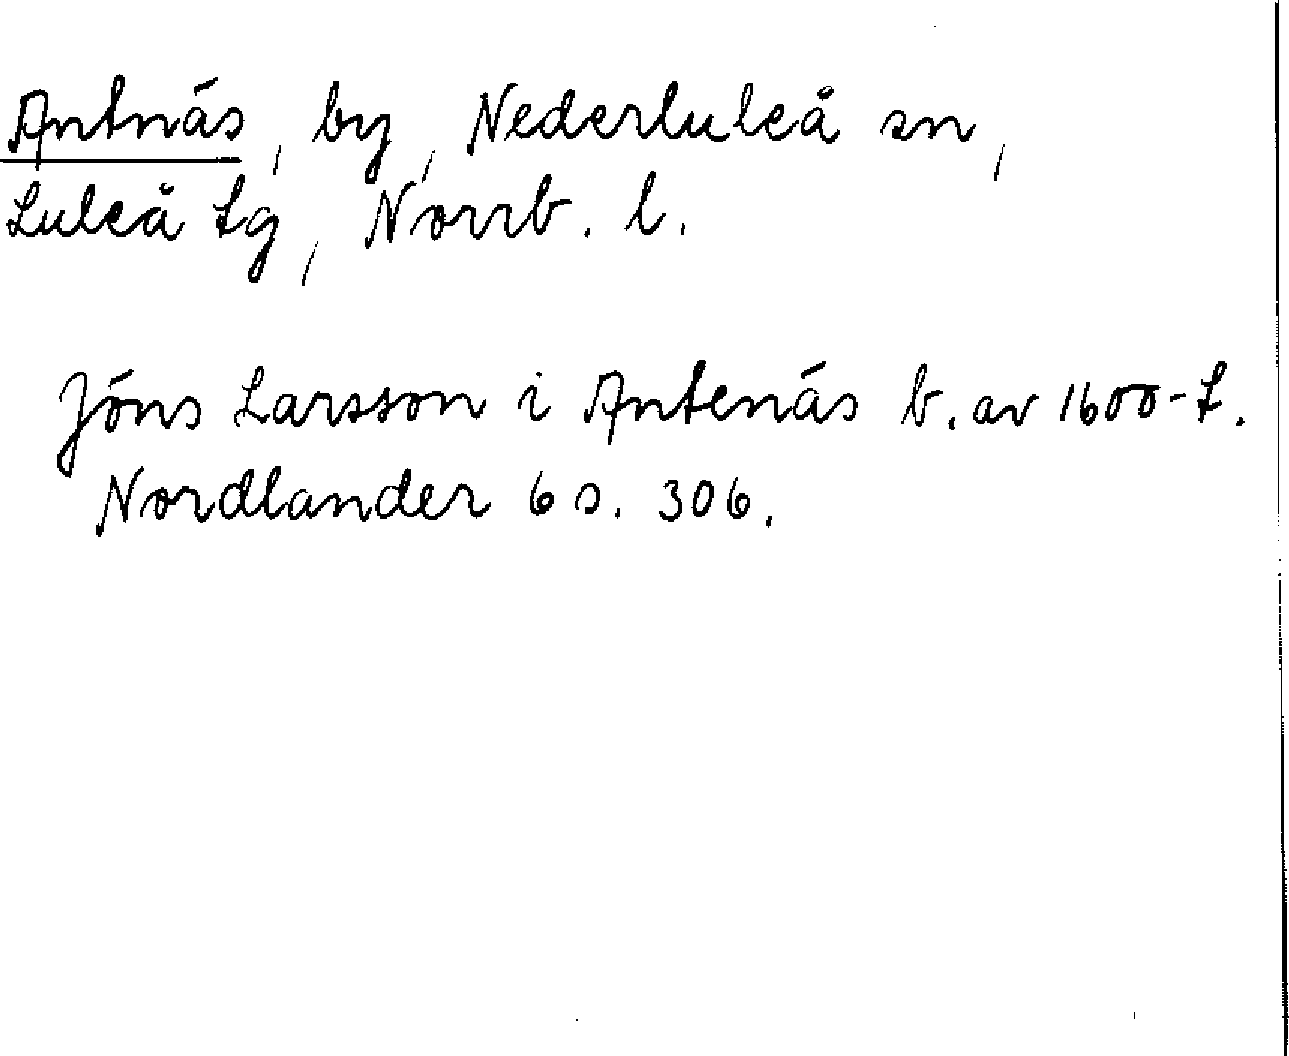 Antnäs, by, Nederluleå sn,
Luleå tg, Norrb. l.
Jöns Larsson i Antenäs b. av 1600-t.
Nordlander 6 s. 306.